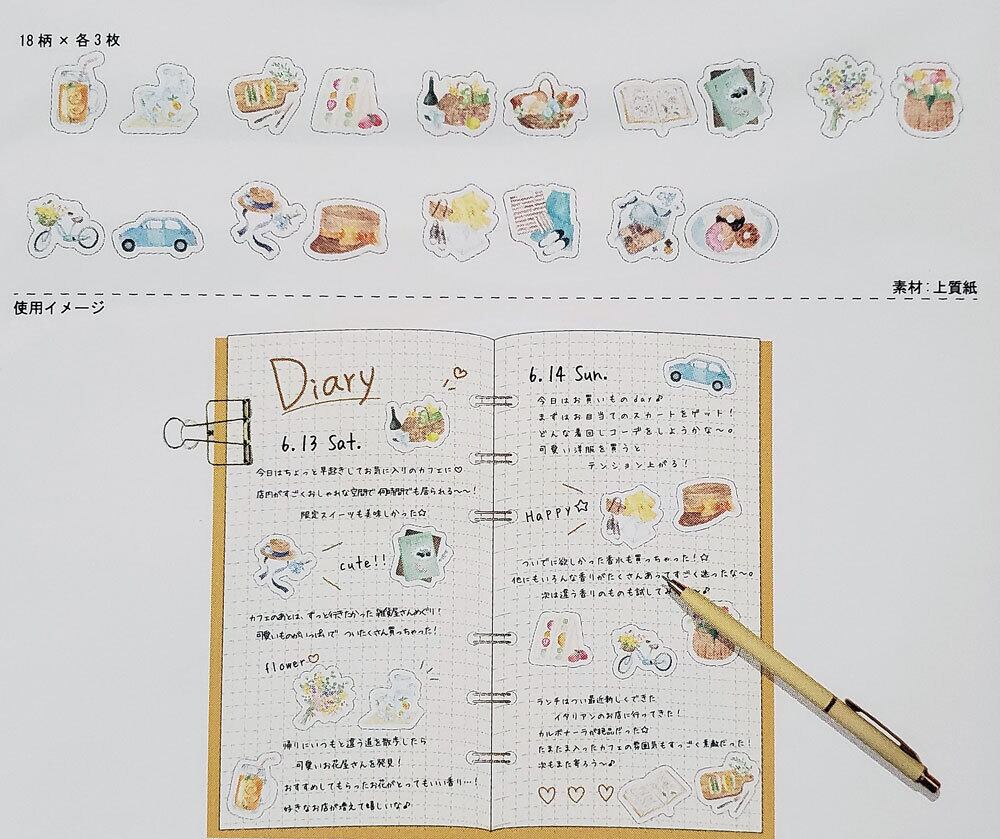 18柄×各3枚
素材:上質紙
使用イメージ
Diary
6.13 Sat.
今日はちょっと早起きしてお気に入りのカフェに♡
店内がすごくおしゃれな空間で何時間でも居られる〜〜!
限定スイーツも美味しかった☆
cute!!
カフェのあとは、ずっと行きたかった雑貨屋さんめぐり!
可愛いものがいっぱいで ついたくさん買っちゃった!
flower♡
帰りにいつもと違う道を散歩したら
可愛いお花屋さんを発見!
おすすめしてもらったお花がとってもいい香り…!
好きなお店が増えて嬉しいな♪
6.14 Sun.
今日はお買いものday♪
まずはお目当てのスカートをゲット!
どんな着回しコーデをしようかな〜。
可愛い洋服を買うと
テンション上がる!
Happy☆
ついでに欲しかった香水も買っちゃった!☆
他にもいろんな香りがたくさんあってすごく迷ったな〜。
次は違う香りのものも試してみ
ランチはつい最近新しくできた
イタリアンのお店に行ってきた!
カルボナーラが絶品だった☆
たまたま入ったカフェの雰囲気もすっごく素敵だった!
次もまた寄ろう〜♪
♡ ♡ ♡